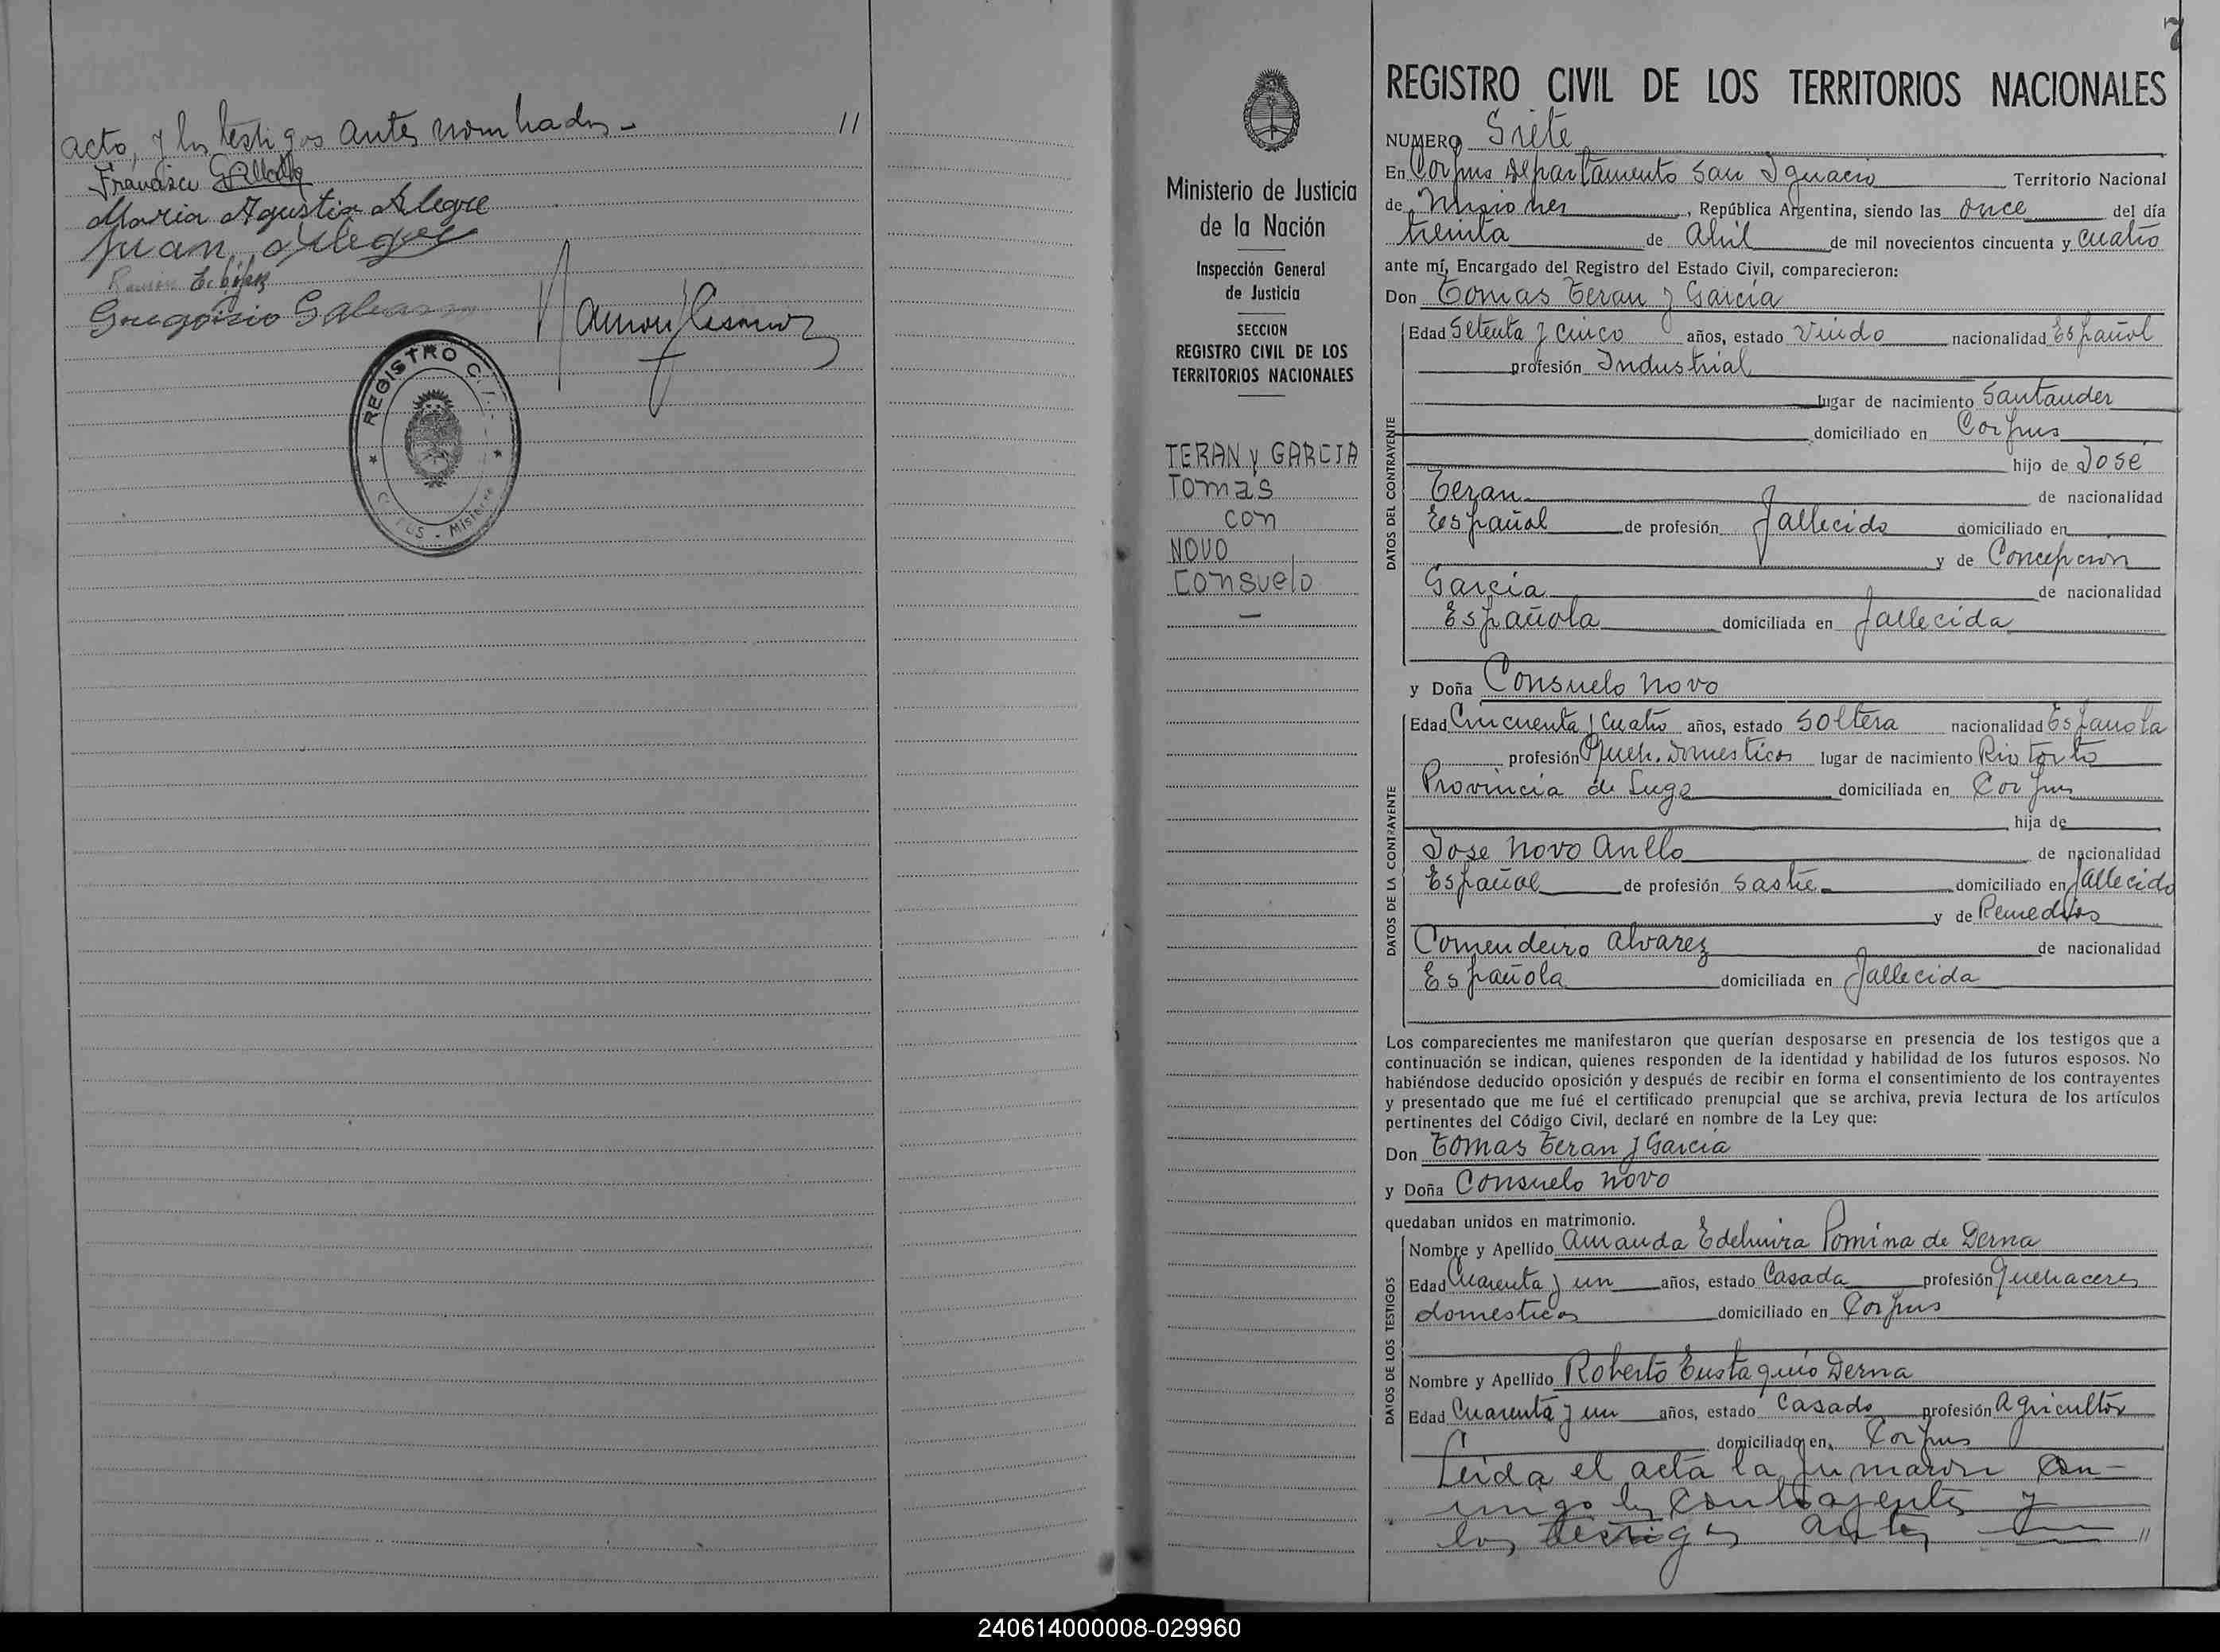 acto, y los testigos antes nombrados - //
Francisco
Maria Agustin Alegre
Juan Alegre
Ramon E. López
Gregorio
REGISTRO CIVIL
- Misiones
Ministerio de Justicia
de la Nación
Inspección General
de Justicia
SECCION
REGISTRO CIVIL DE LOS
TERRITORIOS NACIONALES
TERAN y GARCIA
Tomás
con
NOVO
Consuelo
—
7
REGISTRO CIVIL DE LOS TERRITORIOS NACIONALES
NUMERO Siete
En Corpus Departamento San Ignacio Territorio Nacional
de Misiones, República Argentina, siendo las once del día
treinta de Abril de mil novecientos cincuenta y cuatro
ante mí, Encargado del Registro del Estado Civil, comparecieron:
Don Tomas Teran y Garcia
DATOS DEL CONTRAYENTE
Edad Setenta y cinco años, estado Viudo nacionalidad Español
profesión Industrial
lugar de nacimiento Santander
domiciliado en Corpus
hijo de José
Teran de nacionalidad
Español de profesión fallecido domiciliado en
y de Concepción
Garcia de nacionalidad
Española domiciliada en fallecida
y Doña Consuelo Novo
DATOS DE LA CONTRAYENTE
Edad Cincuenta y Cuatro años, estado Soltera nacionalidad Española
profesión Queh. Domesticos lugar de nacimiento Rio torto
Provincia de Lugo domiciliada en Corpus
hija de
Jose Novo Anllo de nacionalidad
Español de profesión Sastre domiciliado en fallecido
y de Remedios
Comendeiro Alvarez de nacionalidad
Española domiciliada en fallecida
Los comparecientes me manifestaron que querían desposarse en presencia de los testigos que a
continuación se indican, quienes responden de la identidad y habilidad de los futuros esposos. No
habiéndose deducido oposición y después de recibir en forma el consentimiento de los contrayentes
y presentado que me fué el certificado prenupcial que se archiva, previa lectura de los artículos
pertinentes del Código Civil, declaré en nombre de la Ley que:
Don Tomas Teran y Garcia
y Doña Consuelo Novo
quedaban unidos en matrimonio.
DATOS DE LOS TESTIGOS
Nombre y Apellido Amanda Edelmira Pomina de Derna
Edad Cuarenta y un años, estado Casada profesión Quehaceres
domesticos domiciliado en Corpus
Nombre y Apellido Roberto Eustaquio Derna
Edad Cuarenta y un años, estado Casado profesión Agricultor
domiciliado en Corpus
Leida el acta la firmaron con-
migo los contrayentes y
los testigos antes //
240614000008-029960